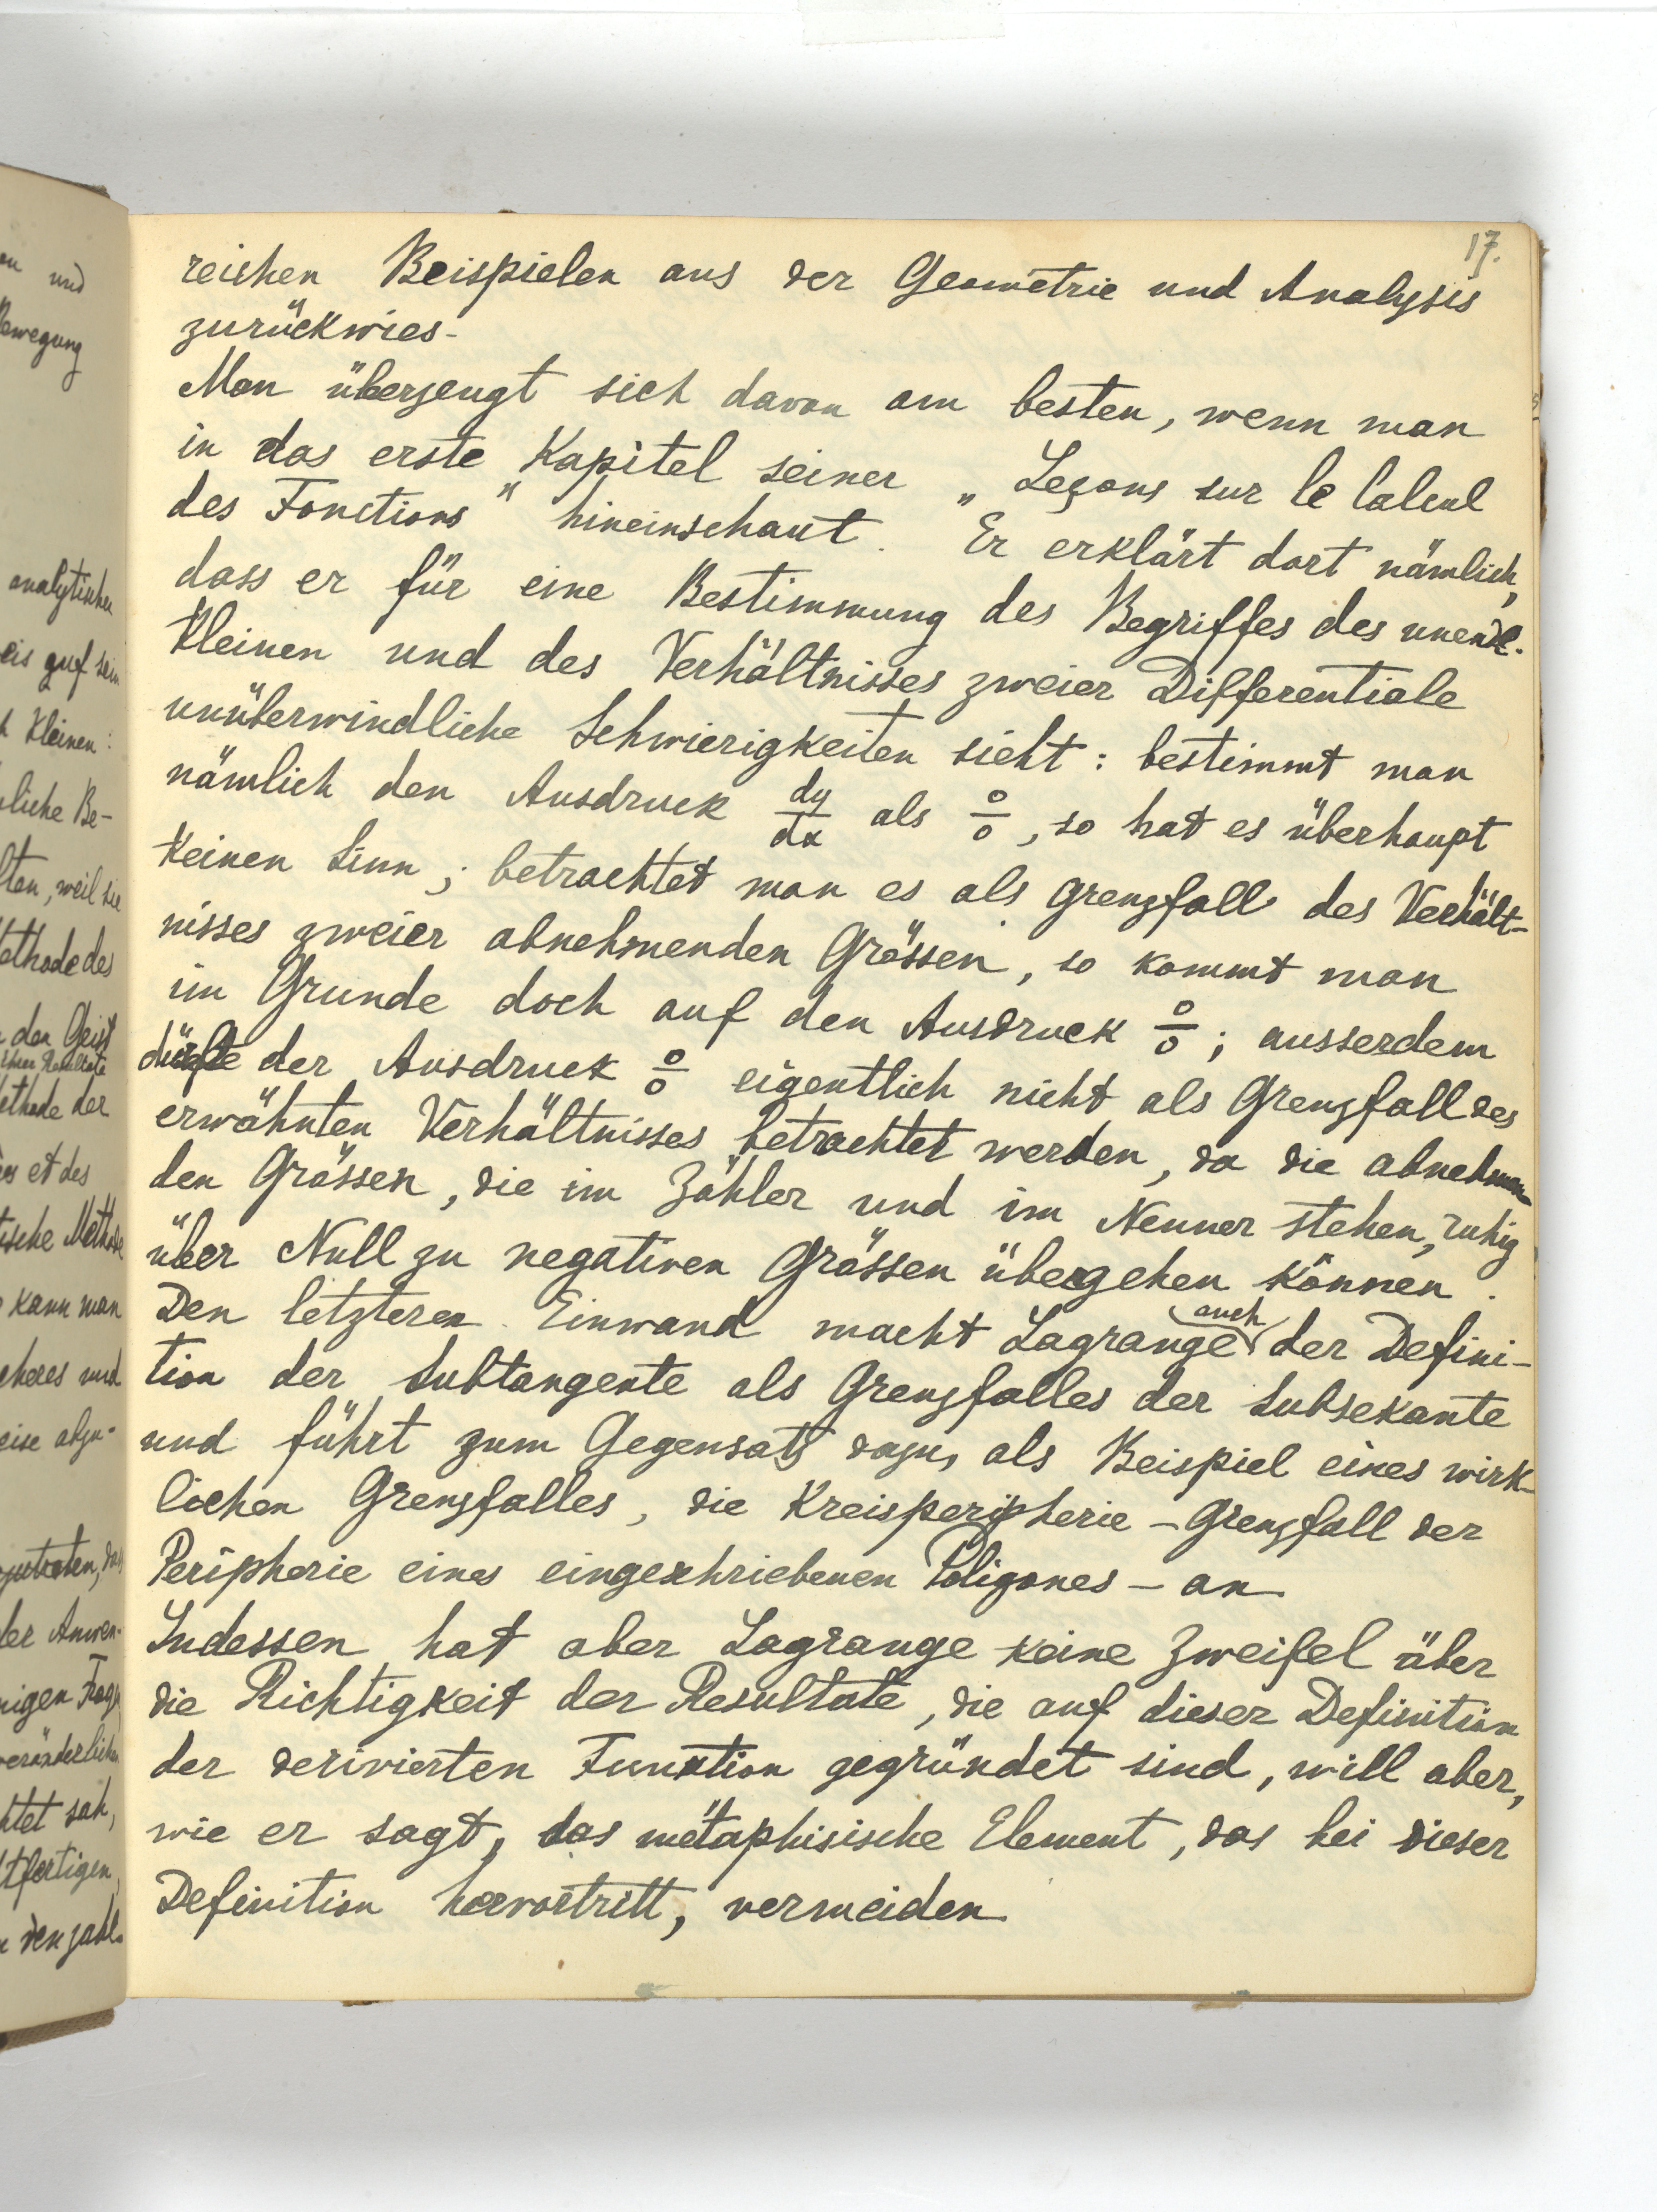 17.
reichen Beispielen aus der Geometrie und Analysis
zurückwies.
Man überzeugt sich davon am besten, wenn man
in das erste Kapitel seiner „Leçons sur le Calcul
des Fonctions" hineinschaut. Er erklärt dort nämlich,
dass er für eine Bestimmung des Begriffes des unendl.
Kleinen und des Verhältnisses zweier Differentiale
unüberwindliche Schwierigkeiten sieht: bestimmt man
nämlich den Ausdruck dy/dx als 0/0, so hat es überhaupt
keinen Sinn; betrachtet man es als Grenzfall des Verhält-
nisses zweier abnehmenden Grössen, so kommt man
im Grunde doch auf den Ausdruck 0/0; ausserdem
dürfte der Ausdruck 0/0 eigentlich nicht als Grenzfall des
erwähnten Verhältnisses betrachtet werden, da die abnehmen
den Grössen, die im Zähler und im Nenner stehen, ruhig
über Null zu negativen Grössen übergehen können.
Den letzteren Einwand macht Lagrange auch der Defini-
tion der Subtangente als Grenzfalles der Subsekante
und führt zum Gegensatz dazu, als Beispiel eines wirk-
lichen Grenzfalles, die Kreisperipherie – Grenzfall der
Peripherie eines eingeschriebenen Poligones – an
Indessen hat aber Lagrange keine Zweifel über
die Richtigkeit der Resultate, die auf dieser Definition
der derivierten Function gegründet sind, will aber,
wie er sagt, das metaphisische Element, das bei dieser
Definition hervortritt, vermeiden
on und
Bewegung
analytischen
eis auf sein
h Kleinen:
liche Be-
lten, weil sie
Methode des
den Geist
ihrer Resultate
ethode der
es et des
tische Methode
kann man
cheres und
eise abzu-
der Anwen-
nigen Frage
veränderlichen
htet sah,
tfertigen,
den zahl-